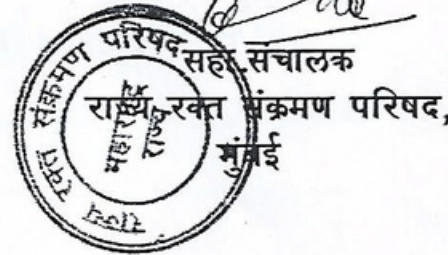 सहा. संचालक
राज्य रक्त संक्रमण परिषद,
मुंबई
राज्य रक्त संक्रमण परिषद
महाराष्ट्र
राज्य